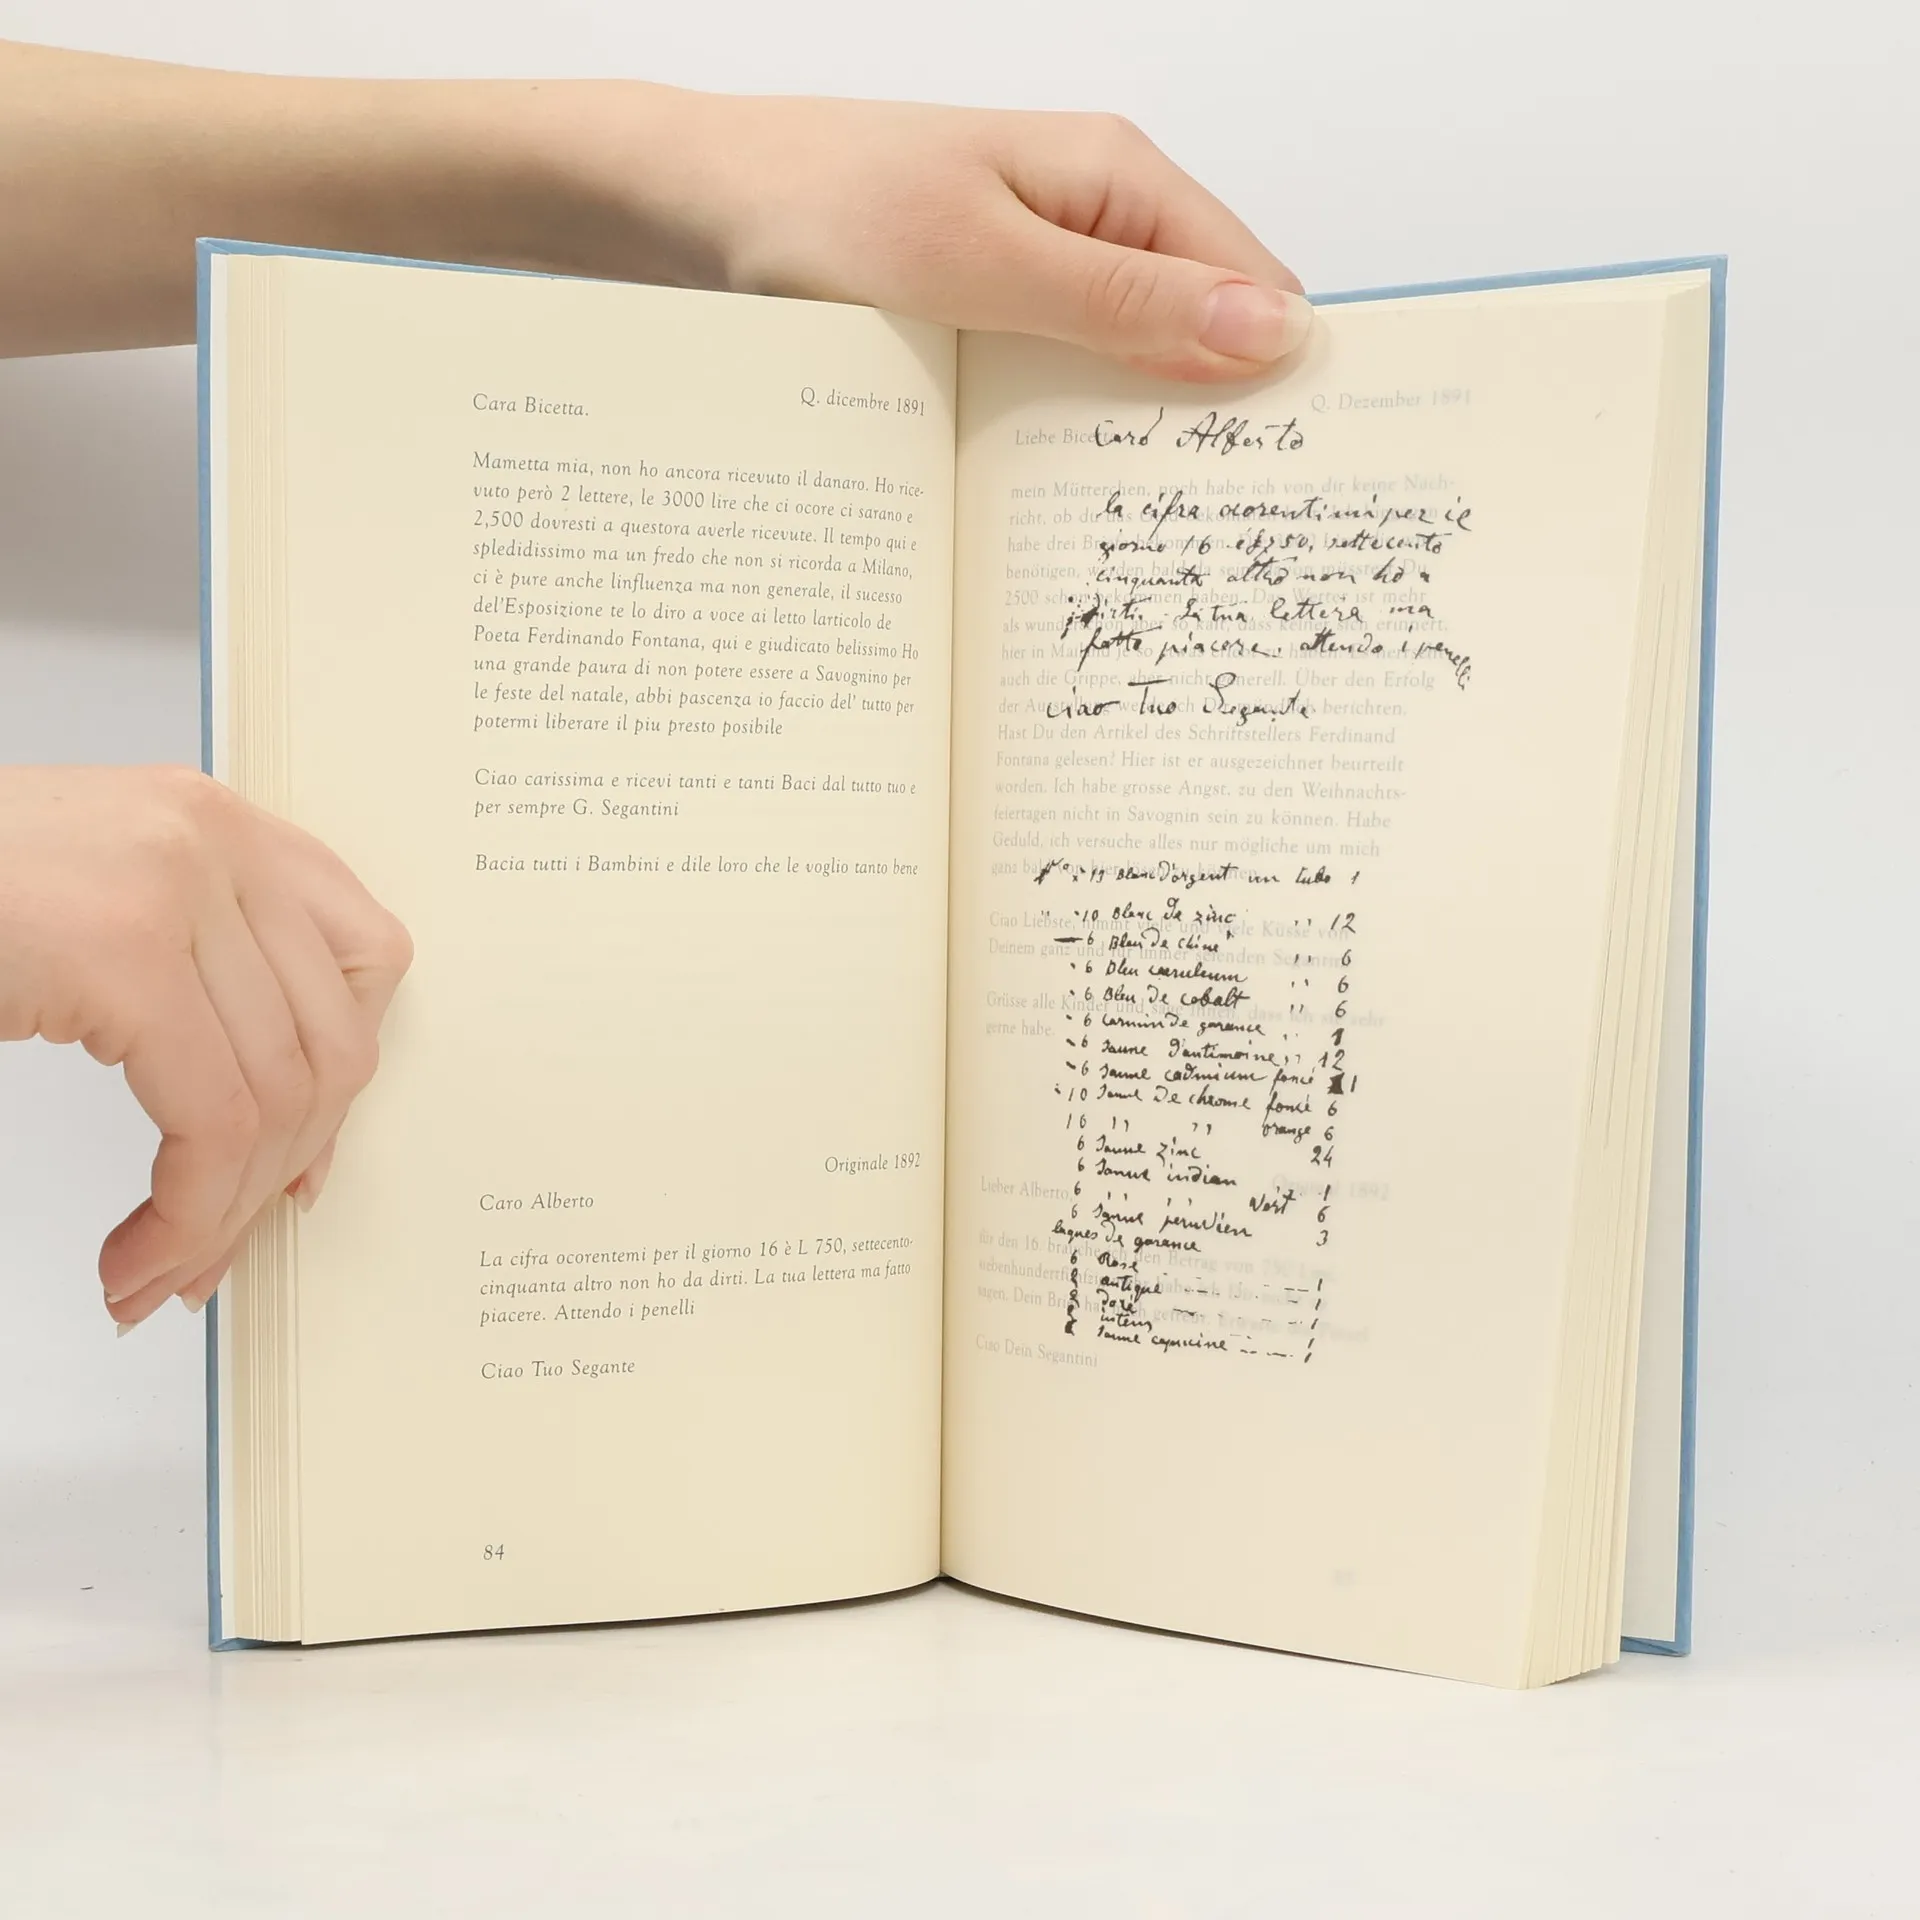 Q. dicembre 1891
Cara Bicetta.
Mametta mia, non ho ancora ricevuto il danaro. Ho rice-
vuto però 2 lettere, le 3000 lire che ci ocore ci sarano e
2,500 dovresti a questora averle ricevute. Il tempo qui e
spledidissimo ma un fredo che non si ricorda a Milano,
ci è pure anche linfluenza ma non generale, il sucesso
del'Esposizione te lo diro a voce ai letto larticolo de
Poeta Ferdinando Fontana, qui e giudicato belissimo Ho
una grande paura di non potere essere a Savognino per
le feste del natale, abbi pascenza io faccio del' tutto per
potermi liberare il piu presto posibile
Ciao carissima e ricevi tanti e tanti Baci dal tutto tuo e
per sempre G. Segantini
Bacia tutti i Bambini e dile loro che le voglio tanto bene
Originale 1892
Caro Alberto
La cifra ocorentemi per il giorno 16 è L 750, settecento-
cinquanta altro non ho da dirti. La tua lettera ma fatto
piacere. Attendo i penelli
Ciao Tuo Segante
84
Caro Alberto
la cifra ocorentimi per il
giorno 16 è £750, settecento
cinquanta altro non ho a
dirti. La tua lettera ma
fatto piacere. attendo i penelli
ciao Tuo Segante
13 Blanc d'argent un tubo 1
10 Blanc de zinc " 12
6 Bleu de chine " 6
6 Bleu cæruleum " 6
6 Bleu de cobalt " 6
6 Carmin de garance "
6 Jaune d'antimoine " 12
6 Jaune cadmium foncé 1
10 Jaune de chrome foncé 6
" " orange 6
6 Jaune zinc 24
6 Jaune indian 1
6 " " Vert 6
6 Jaune peruvien 3
laques de garance
6 Rose
antique 1
doré 1
intens 1
Jaune capucine 1
Q. Dezember 1891
Liebe Bicetta
mein Mütterchen, noch habe ich von dir keine Nach-
richt, ob du das
habe drei Briefe bekommen.
benötigen, werden bald da sein, Du
2500 schon bekommen haben. Das Wetter ist mehr
als wunderschön aber so kalt, dass keiner sich erinnert,
hier in Mailand je so etwas erlebt zu haben.
auch die Grippe, aber nicht generell. Über den Erfolg
der Ausstellung werde ich Dir mündlich berichten.
Hast Du den Artikel des Schriftstellers Ferdinand
Fontana gelesen? Hier ist er ausgezeichnet beurteilt
worden. Ich habe grosse Angst, zu den Weihnachts-
feiertagen nicht in Savognin sein zu können. Habe
Geduld, ich versuche alles nur mögliche um mich
ganz bald von hier
Ciao Liebste, nimm viele und viele Küsse von
Deinem ganz und für immer seienden Segantini
Grüsse alle Kinder und sage ihnen, dass ich sie sehr
gerne habe.
1892
Lieber Alberto,
für den 16. brauche ich den Betrag von 750
siebenhundertfünfzig
sagen. Dein Brief hat mich gefreut. Erwarte die Pinsel
Ciao Dein Segantini